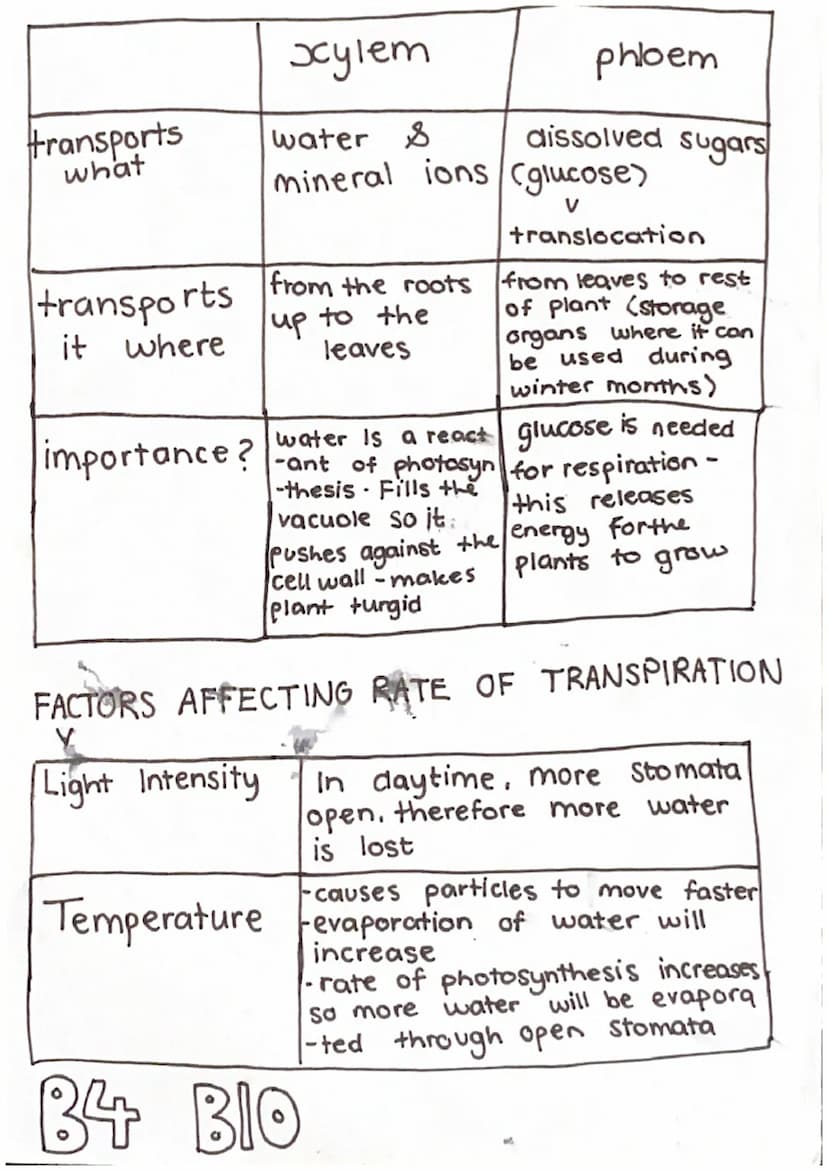 xylem
phloem
transports
what
water &
mineral ions
dissolved sugars
(glucose)
v
translocation
transports
it where
from the roots
up to the
leaves
from leaves to rest
of plant (storage
organs where it can
be used during
winter months)
importance?
water Is a react
-ant of photosyn
-thesis. Fills the
vacuole so it
pushes against the
cell wall - makes
plant turgid
glucose is needed
for respiration -
this releases
energy forthe
plants to grow
FACTORS AFFECTING RATE OF TRANSPIRATION
Light Intensity
In daytime, more stomata
open, therefore more water
is lost
Temperature
-causes particles to move faster
-evaporation of water will
increase
-rate of photosynthesis increases
so more water will be evapora
-ted through open stomata
B4 BIO